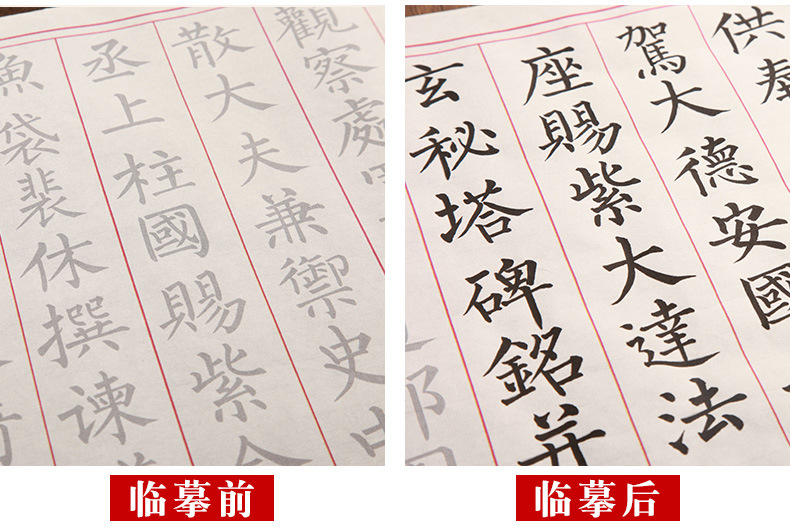 觀察處
散大夫兼禦史中
丞上柱國賜紫金
魚袋裴休撰谏
供奉
駕大德安國
座賜紫大達法
玄秘塔碑銘并
临摹前
临摹后